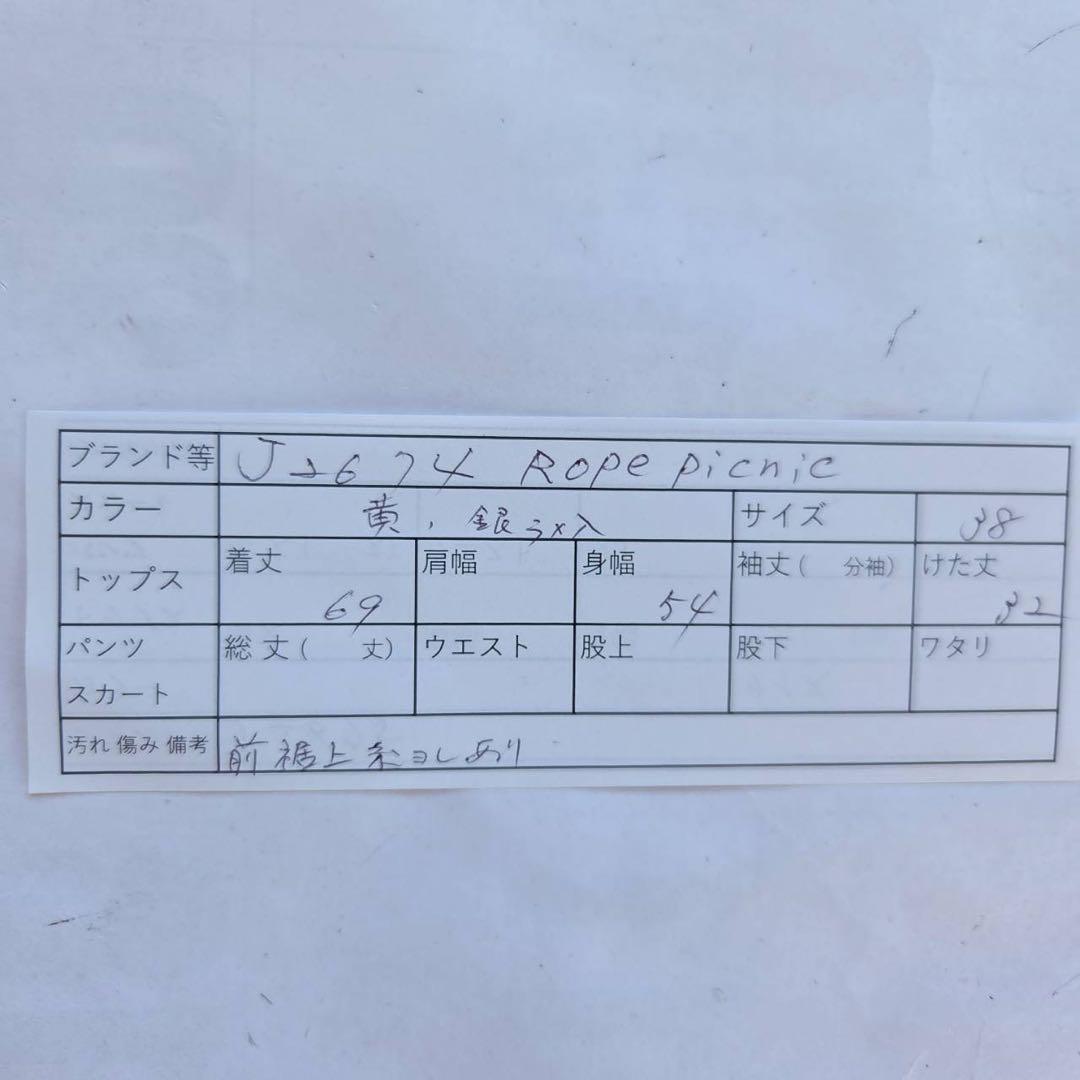 ブランド等 J2674 Rope picnic
カラー 黄、銀ラメ入 サイズ 38
トップス 着丈 69 肩幅 身幅 54 袖丈( 分袖) けた丈 32
パンツ スカート 総丈( 丈) ウエスト 股上 股下 ワタリ
汚れ 傷み 備考 前裾上糸ヨレあり